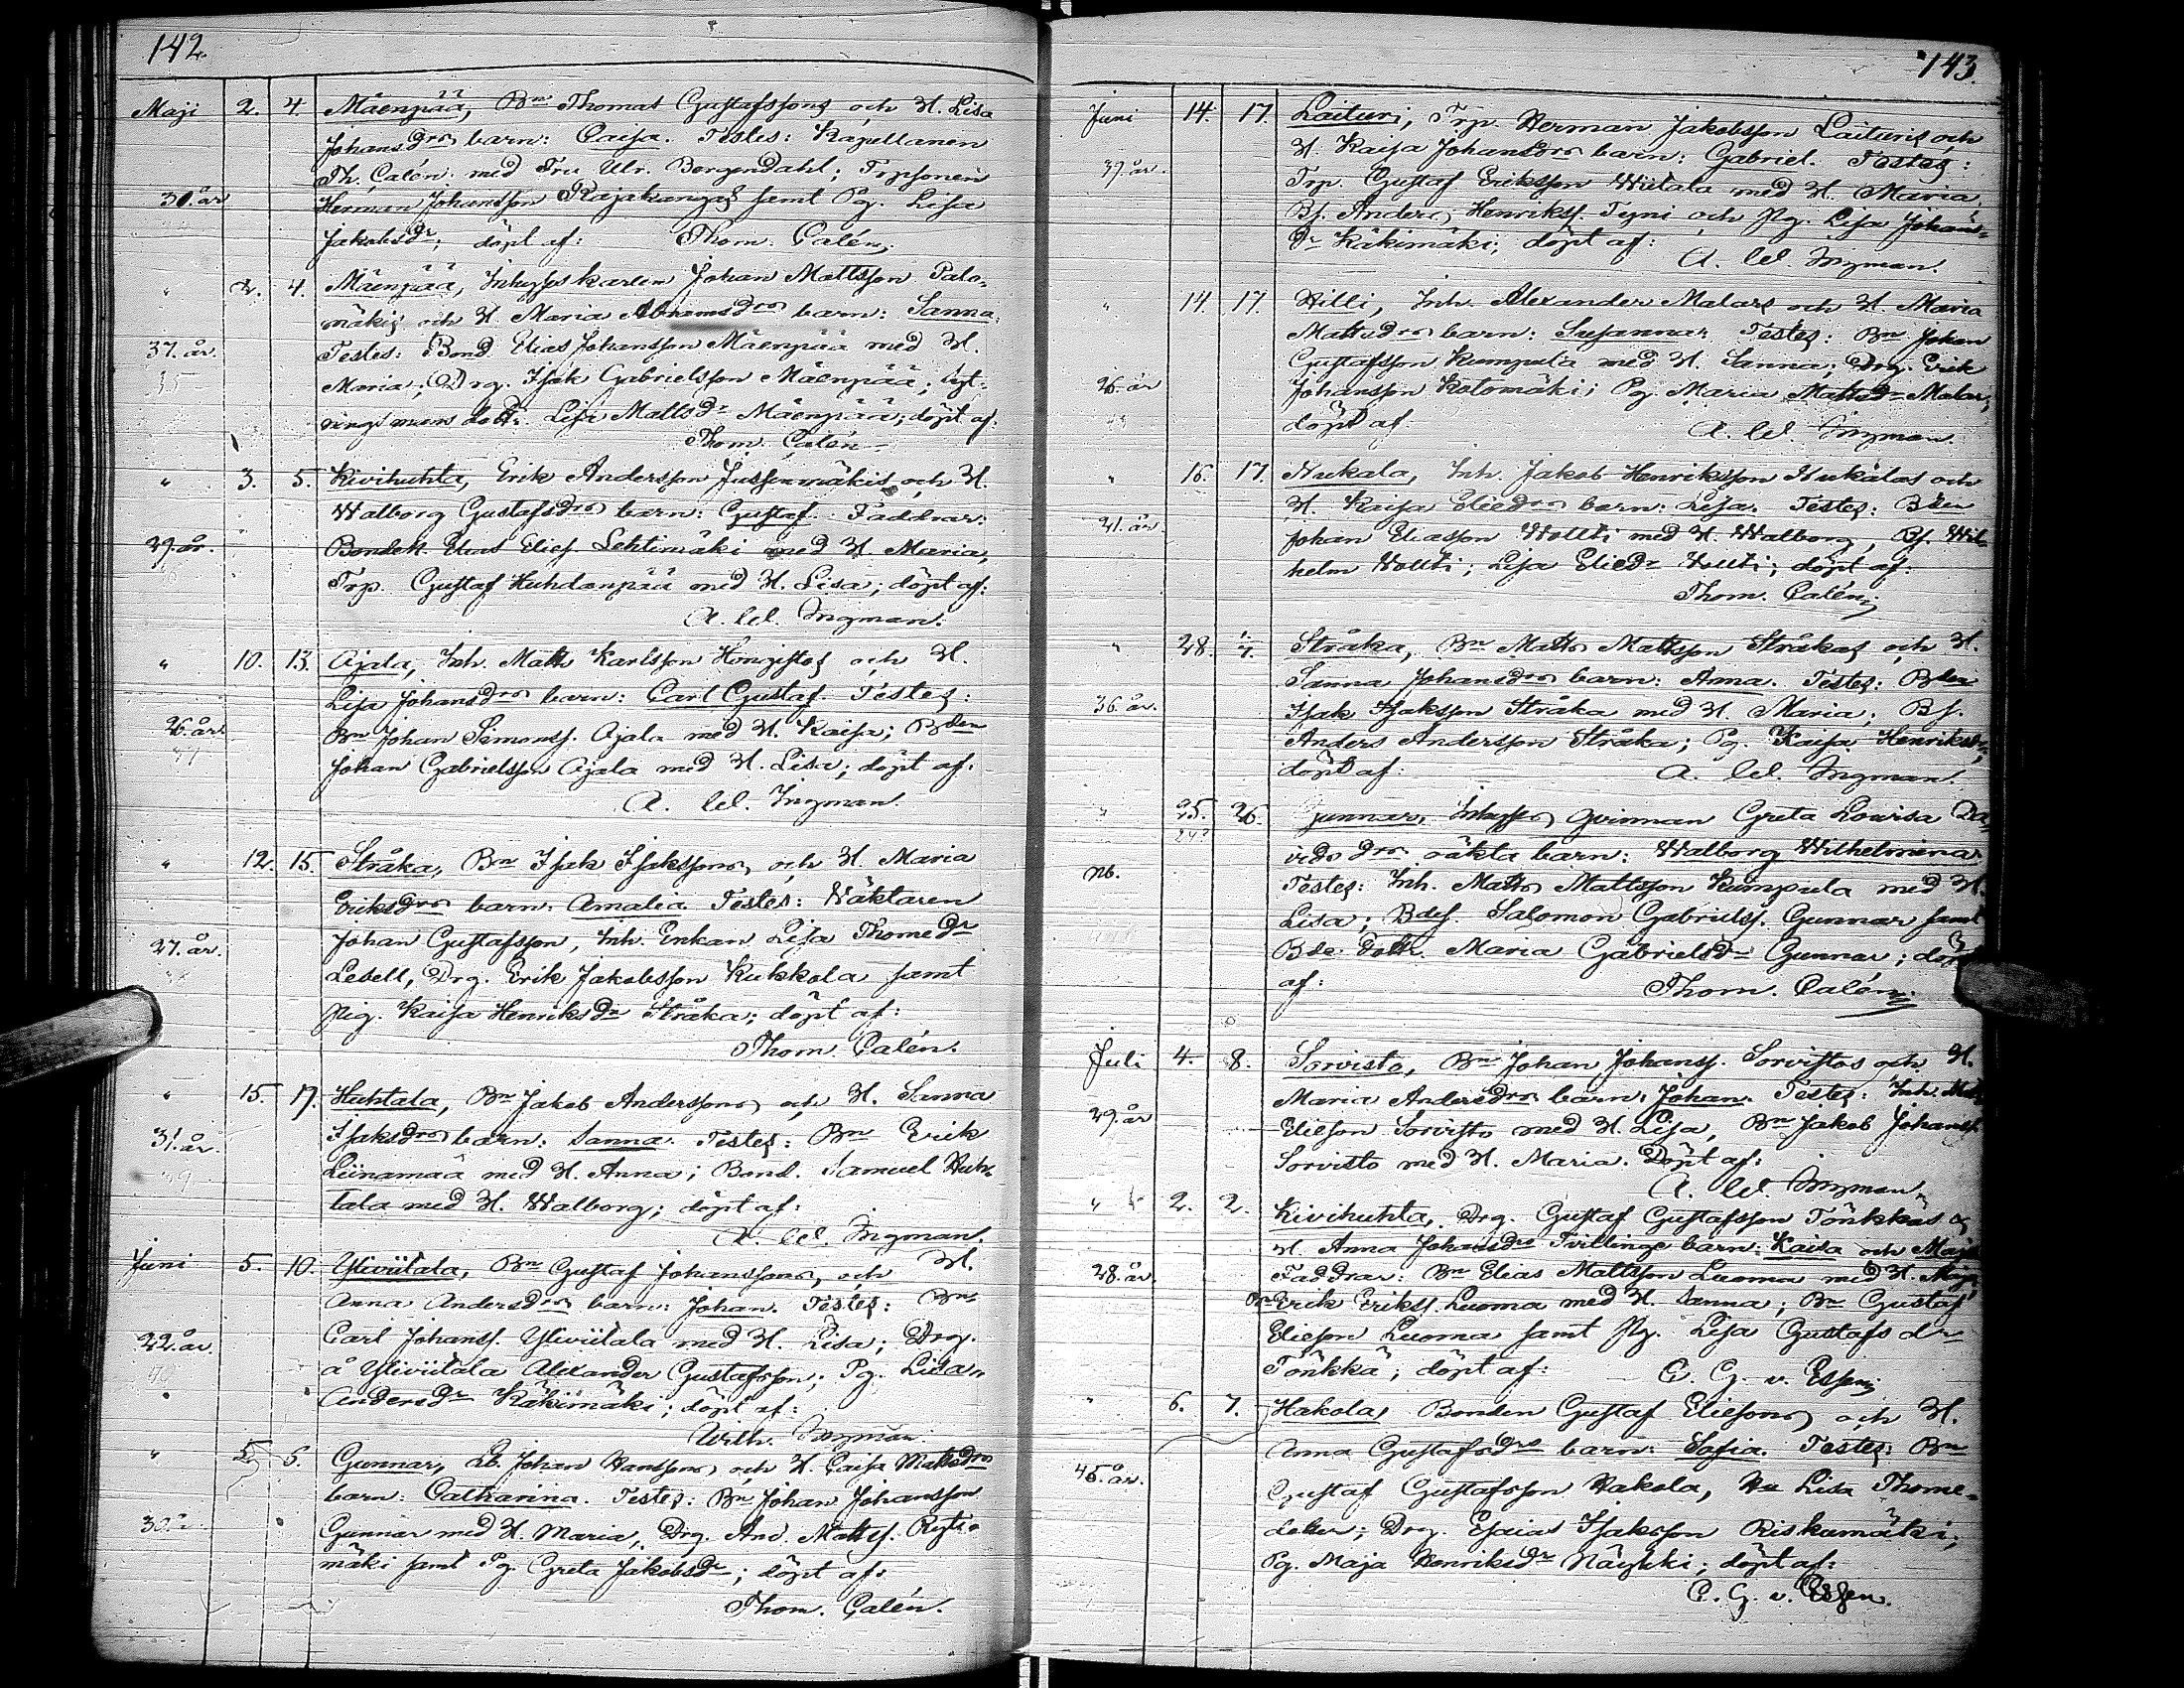 142.
Maji 2. 4. Mäenpää, Bn Thomas Gustafssons och H. Lisa
Johansdrs barn: Caisa. Testes: Kapellanen
Th. Calén med Fru Ulr. Borgendahl; Trpsonen
30. år Herman Johansson Rajakangas samt Pg. Lisa
Jakobsdr; döpt af: Thom. Calén.
" 2. 4. Mäenpää, Inhyses karlen Johan Mattsson Palo-
mäkis och H. Maria Abramsdrs barn: Sanna.
37. år. Testes: Bond. Elias Johansson Mäenpää med H.
35 Maria; Drg. Isak Gabrielsson Mäenpää;
dott. Lisa Mattsdr Mäenpää; döpt af:
Thom. Calén.
" 3. 5. Kivihuhta, Erik Andersson Jussenmäkis och H.
Walborg Gustafsdrs barn: Gustaf. Faddrar:
29. år. Bonden Elias Elies. Lehtimäki med H. Maria,
Trp. Gustaf Huhdanpää med H. Lisa; döpt af:
A. W. Ingman.
" 10. 13. Ajala, Inh. Matts Karlsson Hongistos och H.
Lisa Johansdrs barn: Carl Gustaf. Testes:
26. år Bn Johan Simonss. Ajala med H. Kaisa; Bden
Johan Gabrielsson Ajala med H. Lisa; döpt af:
A. W. Ingman.
" 12. 15. Stråka, Bn Isak Isakssons och H. Maria
Eriksdrs barn: Amalia. Testes: Wäktaren
27. år. Johan Gustafsson, Inh. Enkan Lisa Thomedr
Ledell, Drg. Erik Jakobsson Kukkola samt
Pig. Kaisa Henriksdr Stråka; döpt af:
Thom. Calén.
" 15. 17. Huhtala, Bn Jakob Anderssons och H. Sanna
31. år. Isaksdrs barn: Sanna. Testes: Bn Erik
Liinamaa med H. Anna; Bond. Samuel Huh-
tala med H. Walborg; döpt af:
A. W. Ingman.
Juni 5. 10. Yliviitala, Bn Gustaf Johanssons och H.
Anna Andersdrs barn: Johan. Testes: Bn
22. år. Carl Johanss. Yliviitala med H. Lisa; Drg.
å Yliviitala Alexander Gustafsson; Pg. Lisa
Andersdr Käkimäki; döpt af:
Wilh. Ingman.
" 5. 6. Gunnar, Lb. Johan Hanssons och H. Caisa Mattsdrs
barn: Catharina. Testes: Bn Johan Johansson
30. Gunnar med H. Maria, Drg. And. Matts. Ryti-
mäki samt Pg. Greta Jakobsdr; döpt af:
Thom. Calén.
143.
Juni 14. 17. Laituri, Trp. Herman Jakobsson Laituris och
39. år. H. Kaisa Johansdrs barn: Gabriel. Testes:
Trp. Gustaf Eriksson Wiitala med H. Maria,
Bs. Anders Henrikss. Tyni och Pig. Lisa Johans-
dr Käkimäki; döpt af:
A. W. Ingman.
" 14. 17. Hilli, Inh. Alexander Malars och H. Maria
Mattsdrs barn: Susanna. Testes: Bn Johan
Gustafsson Kumpula med H. Sanna; Drg. Erik
26. år Johansson Kolomäki; Pg. Maria Mattsdr Malar;
döpt af: A. W. Ingman.
" 16. 17. Nukala, Inh. Jakob Henriksson Nukalas och
H. Kaisa Eliedrs barn: Lisa. Testes: Bden
21. år. Johan Eliasson Woltti med H. Walborg, Bs. Wil-
helm Woltti; Lisa Eliedr Woltti; döpt af:
Thom. Calén.
" 28. 1/7. Stråka, Bn Matts Mattsson Stråkas och H.
Sanna Johansdrs barn: Anna. Testes: Bden
36. år. Isak Isaksson Stråka med H. Maria; Bs.
Anders Andersson Stråka; Pg. Kaisa Henriksdr;
döpt af: A. W. Ingman.
" 25. 26. Gunnar, Inhyses qvinnan Greta Lovisa Da-
24? vidsdrs oäkta barn: Walborg Wilhelmina.
nb. Testes: Inh. Matts Mattsson Kumpula med H.
Lisa; Bdes. Salomon Gabrielss. Gunnar samt
Bde Dott. Maria Gabrielsdr Gunnar; döpt
af: Thom. Calén.
Juli 4. 8. Sorvisto, Bn Johan Johanss. Sorvistos och H.
29. år Maria Andersdrs barn: Johan. Testes: Inh.
Elieson Sorvisto med H. Lisa, Bn Jakob Johanss.
Sorvisto med H. Maria. Döpt af:
A. W. Ingman.
" 2. 2. Kivihuhta, Drg. Gustaf Gustafsson Tönkkäs o
H. Anna Johansdrs Tvillinge barn: Kaisa och Maja
28. år. Faddrar: Bn Elias Mattsson Luoma med H. Maja,
Bn Erik Erikss. Luoma med H. Sanna; Bn Gustaf
Elieson Luoma samt Pig. Lisa Gustafsdr
Tönkkä; döpt af: C. G. v. Essen.
" 6. 7. Hakola, Bonden Gustaf Eliesons och H.
Anna Gustafsdrs barn: Sofia. Testes: Bn
45. år. Gustaf Gustafsson Hakola, Hu Lisa Thome-
dotter; Drg. Esaias Isaksson Riskumäki;
Pg. Maja Henriksdr Näykki; döpt af:
C. G. v. Essen.